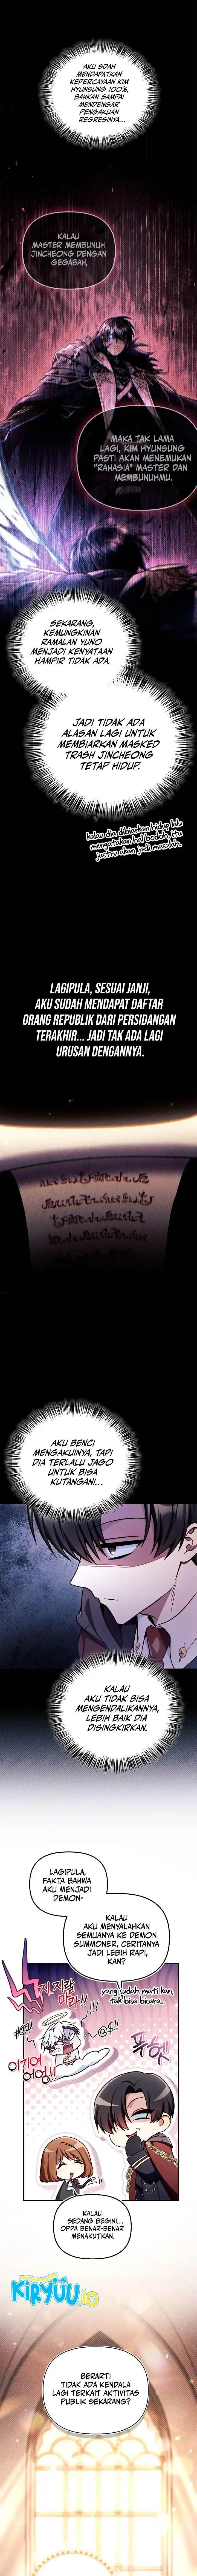 AKU SDAH
MENDAPATKAN
KEPERCAYAAN KIM
HYUNSUNG 100%,
BAHKAN SAMPAI
MENDENGAR
PENGAKUAN
REGRESINYA...
KALAU
MASTER MEMBUNUH
JINCHEONG DENGAN
GEGABAH,
MAKA TAK LAMA
LAGI, KIM HYUNSUNG
PASTI AKAN MENEMUKAN
"RAHASIA" MASTER DAN
MEMBUNUHMU.
SEKARANG,
KEMUNGKINAN
RAMALAN YUNO
MENJADI KENYATAAN
HAMPIR TIDAK ADA.
JADI TIDAK ADA
ALASAN LAGI UNTUK
MEMBIARKAN MASKED
TRASH JINCHEONG
TETAP HIDUP.
kalau dia dibiarkan hidup lalu
mengatakan hal bodoh, itu
justru akan jadi masalah.
LAGIPULA, SESUAI JANJI,
AKU SUDAH MENDAPAT DAFTAR
ORANG REPUBLIK DARI PERSIDANGAN
TERAKHIR... JADI TAK ADA LAGI
URUSAN DENGANNYA.
AKU BENCI
MENGAKUINYA, TAPI
DIA TERLALU JAGO
UNTUK BISA
KUTANGANI...
KALAU
AKU TIDAK BISA
MENGENDALIKANNYA,
LEBIH BAIK DIA
DISINGKIRKAN.
LAGIPULA,
FAKTA BAHWA
AKU MENJADI
DEMON-
KALAU
AKU MENYALAHKAN
SEMUANYA KE DEMON
SUMMONER, CERITANYA
JADI LEBIH RAPI,
KAN?
yang sudah mati kan,
tak bisa bicara...
지랄
마라!!
!!!
@$!!
#@!
이기여
어엉!!
KALAU
SEDANG BEGINI...
OPPA BENAR-BENAR
MENAKUTKAN.
KIRYUU.IO
BERARTI
TIDAK ADA KENDALA
LAGI TERKAIT AKTIVITAS
PUBLIK SEKARANG?